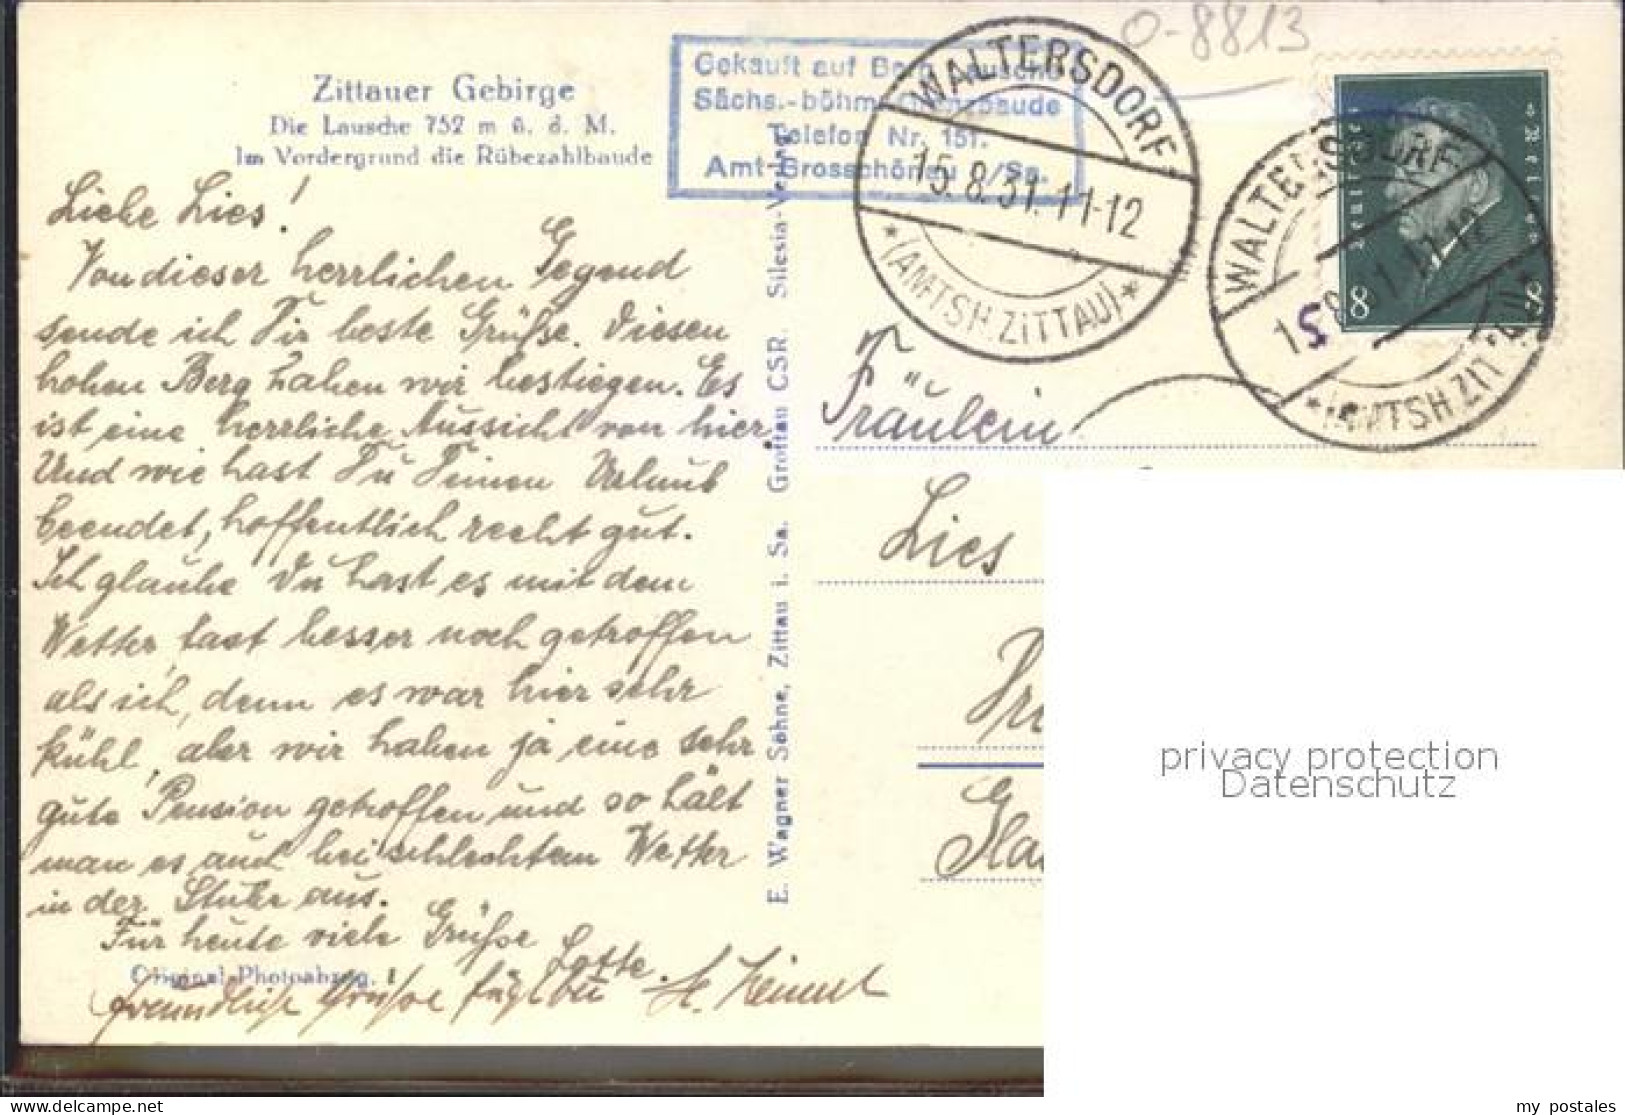 Zittauer Gebirge
Die Lausche 752 m ü. d. M.
Im Vordergrund die Rübezahlbaude
Liebe Lies!
Von dieser herrlichen Gegend
sende ich Dir beste Grüße. Diesen
hohen Berg haben wir bestiegen. Es
ist eine herrliche Aussicht von hier.
Und wie hast Du Deinen Urlaub
beendet, hoffentlich recht gut.
Ich glaube Du hast es mit dem
Wetter fast besser noch getroffen
als ich, denn es war hier sehr
kühl, aber wir haben ja eine sehr
gute Pension getroffen und so hält
man es auch bei schlechtem Wetter
in der Stube aus.
Für heute viele Grüße Lotte.
Original-Photoabzug. 1
freundliche Grüße fügt bei H.
E. Wagner Söhne, Zittau i. Sa. Grottau CSR. Silesia-Verlag
Gekauft auf Berg Lausche
Sächs.-böhm. Grenzbaude
Telefon Nr. 151.
Amt Grosschönau i/Sa.
WALTERSDORF
15.8.31.11-12
★(AMTSH. ZITTAU)★
O-8813
Deutsches Reich
8 8
WALTERSDORF
15.8.31.11-12
★(AMTSH. ZITTAU)★
Fräulein
Lies
privacy protection
Datenschutz
my postales